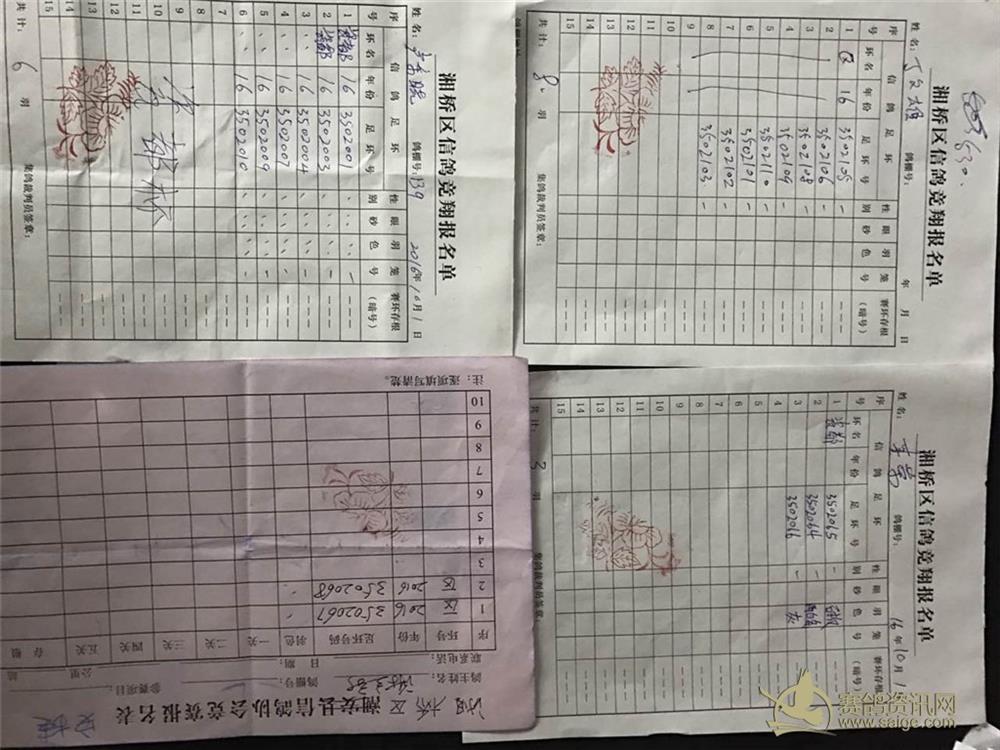 湘桥区信鸽竞翔报名单
姓名: 鸽棚号:139 2016年10月1日
序号 信鸽足环号 性别 眼砂 羽色 笼号 赛环存根(暗号)
环名 年份 足环号
1 16 3502001
2 16 3502003
3 16 3502004
4 16 3502007
5 16 3502009
6 16 3502010
7
8
9
10
11
12
13
14
15
共计: 6 羽 集鸽裁判员签章:
湘桥区信鸽竞翔报名单
姓名:丁文雄 鸽棚号: 年 月 日
序号 信鸽足环号 性别 眼砂 羽色 笼号 赛环存根(暗号)
环名 年份 足环号
1 区 16 3502105
2 3502106
3 3502108
4 3502109
5 3502110
6 3502101
7 3502102
8 3502103
9
10
11
12
13
14
15
共计: 8 羽 集鸽裁判员签章:
湘桥区 潮安县信鸽协会竞赛报名表
鸽主姓名: 鸽棚号: 参赛项目: 公里
联系电话: 日期:
序 环号 年份 足环号码 羽色 一关 二关 三关 四关 五关 存根
1 区 2016 3502067
2 区 2016 3502068
3
4
5
6
7
8
9
10
注:逐项填写清楚。
湘桥区信鸽竞翔报名单
姓名: 鸽棚号: 16年10月1
序号 信鸽足环号 性别 眼砂 羽色 笼号 赛环存根(暗号)
环名 年份 足环号
1 3502065
2 3502064
3 3502066 灰
4
5
6
7
8
9
10
11
12
13
14
15
共计: 3 羽 集鸽裁判员签章:
赛鸽资讯网
www.saige.com